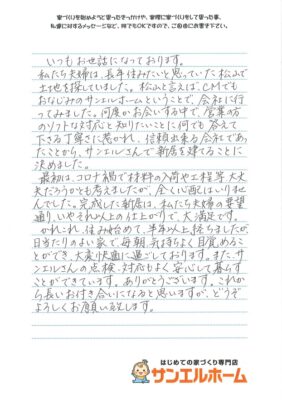 家づくりを始めようと思ったきっかけや、実際に家づくりをして思った事、
私達に対するメッセージなど、何でもOKですので、ご自由にお書き下さい。
いつもお世話になっております。
私たち夫婦は、長年住みたいと思っていた松山で
土地を探していました。松山と言えば、CMでも
おなじみのサンエルホームということで、会社に行
ってみました。何度かお会いする中で、営業の方
のソフトな対応と知りたいことに何でも答えて
下さる丁寧さに惹かれ、信頼出来る会社であっ
たことから、サンエルさんで新居を建てることに
決めました。
最初は、コロナ禍で材料の入荷や工程等大丈
夫だろうかとも考えましたが、全く心配はいりませ
んでした。完成した新居は、私たち夫婦の要望
通り、いやそれ以上の仕上がりで、大満足です。
かれこれ、住み始めて、半年以上経ちましたが、
日当たりのよい家で、毎朝、気持ちよく目覚めるこ
とができ、大変快適に過ごしております。また、サ
ンエルさんの点検、対応もよく安心して暮らす
ことができています。ありがとうございます。これか
ら長いお付き合いになると思いますが、どうぞ
よろしくお願い致します。
はじめての家づくり専門店
サンエルホーム